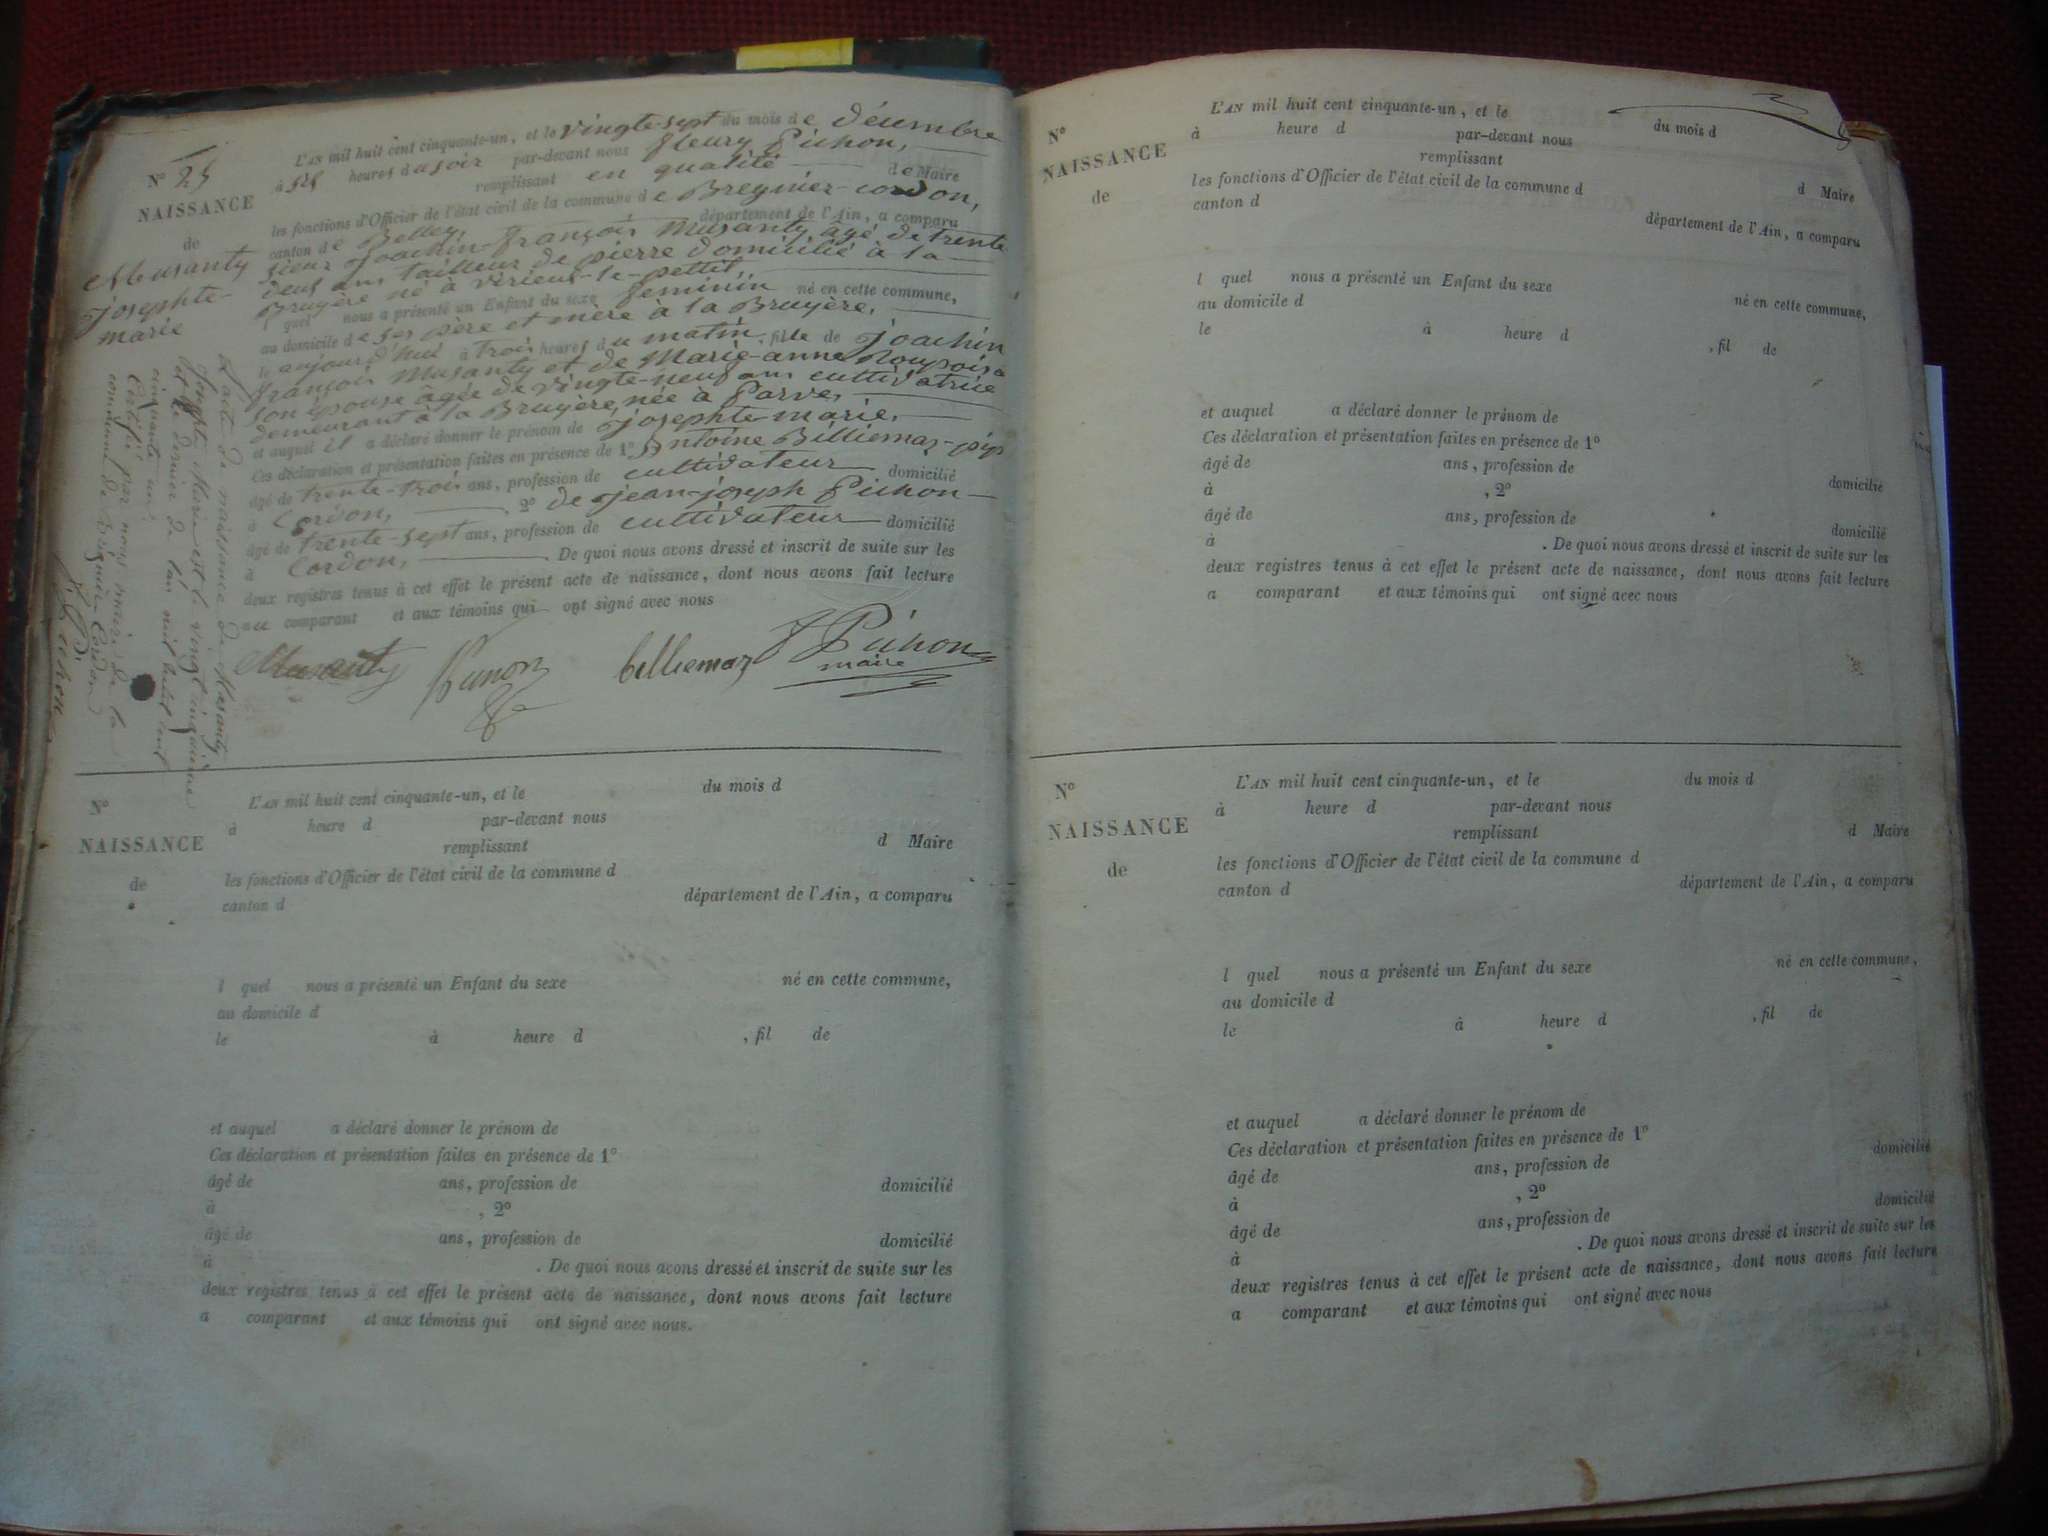 N° 25
NAISSANCE
de
Musanty
Josephte-
marie
L'AN mil huit cent cinquante-un, et le vingte-sept du mois de décembre
à six heures du soir par-devant nous fleury Pichon,
remplissant en qualité de Maire
les fonctions d'Officier de l'état civil de la commune de Bregnier-cordon,
canton de Belley, département de l'Ain, a comparu
sieur Joachin-françois Musanty âgé de trente
deux ans tailleur de pierre domicilié à la
Bruyère né à virieux-le-pettit,
l quel nous a présenté un Enfant du sexe feminin né en cette commune,
au domicile de ses père et mère à la Bruyère,
le aujourd'hui à trois heures du matin, fille de joachin
françois Musanty et de Marie-anne
son épouse âgée de vingte-neuf ans cultivatrice
demeurant à la Bruyère, née à Parve,
et auquel il a déclaré donner le prénom de josephte marie,
Ces déclaration et présentation faites en présence de 1° Antoine Billiemaz-
âgé de trente-trois ans, profession de cultivateur domicilié
à Cordon, 2° de jean-joseph Pichon
âgé de trente-sept ans, profession de cultivateur domicilié
à Cordon, De quoi nous avons dressé et inscrit de suite sur les
deux registres tenus à cet effet le présent acte de naissance, dont nous avons fait lecture
au comparant et aux témoins qui ont signé avec nous
Musanty Pichon billiemaz F Pichon
maire
L'acte de naissance de Musanty
Josephte Marie est le vingt cinquième
et le dernier de l'an mil huit cent
cinquante un.
Certifié par nous maire de la
commune de Brégnier Cordon
F. Pichon
N°
NAISSANCE
de
L'AN mil huit cent cinquante-un, et le du mois d
à heure d par-devant nous
remplissant d Maire
les fonctions d'Officier de l'état civil de la commune d
canton d département de l'Ain, a comparu
l quel nous a présenté un Enfant du sexe né en cette commune,
au domicile d
le à heure d , fil de
et auquel a déclaré donner le prénom de
Ces déclaration et présentation faites en présence de 1°
âgé de ans, profession de domicilié
à , 2°
âgé de ans, profession de domicilié
à . De quoi nous avons dressé et inscrit de suite sur les
deux registres tenus à cet effet le présent acte de naissance, dont nous avons fait lecture
a comparant et aux témoins qui ont signé avec nous.
N°
NAISSANCE
de
L'AN mil huit cent cinquante-un, et le du mois d
à heure d par-devant nous
remplissant d Maire
les fonctions d'Officier de l'état civil de la commune d
canton d département de l'Ain, a comparu
l quel nous a présenté un Enfant du sexe né en cette commune,
au domicile d
le à heure d , fil de
et auquel a déclaré donner le prénom de
Ces déclaration et présentation faites en présence de 1°
âgé de ans, profession de domicilié
à , 2°
âgé de ans, profession de domicilié
à . De quoi nous avons dressé et inscrit de suite sur les
deux registres tenus à cet effet le présent acte de naissance, dont nous avons fait lecture
a comparant et aux témoins qui ont signé avec nous
N°
NAISSANCE
de
L'AN mil huit cent cinquante-un, et le du mois d
à heure d par-devant nous
remplissant d Maire
les fonctions d'Officier de l'état civil de la commune d
canton d département de l'Ain, a comparu
l quel nous a présenté un Enfant du sexe né en cette commune,
au domicile d
le à heure d , fil de
et auquel a déclaré donner le prénom de
Ces déclaration et présentation faites en présence de 1°
âgé de ans, profession de domicilié
à , 2°
âgé de ans, profession de domicilié
à . De quoi nous avons dressé et inscrit de suite sur les
deux registres tenus à cet effet le présent acte de naissance, dont nous avons fait lecture
a comparant et aux témoins qui ont signé avec nous